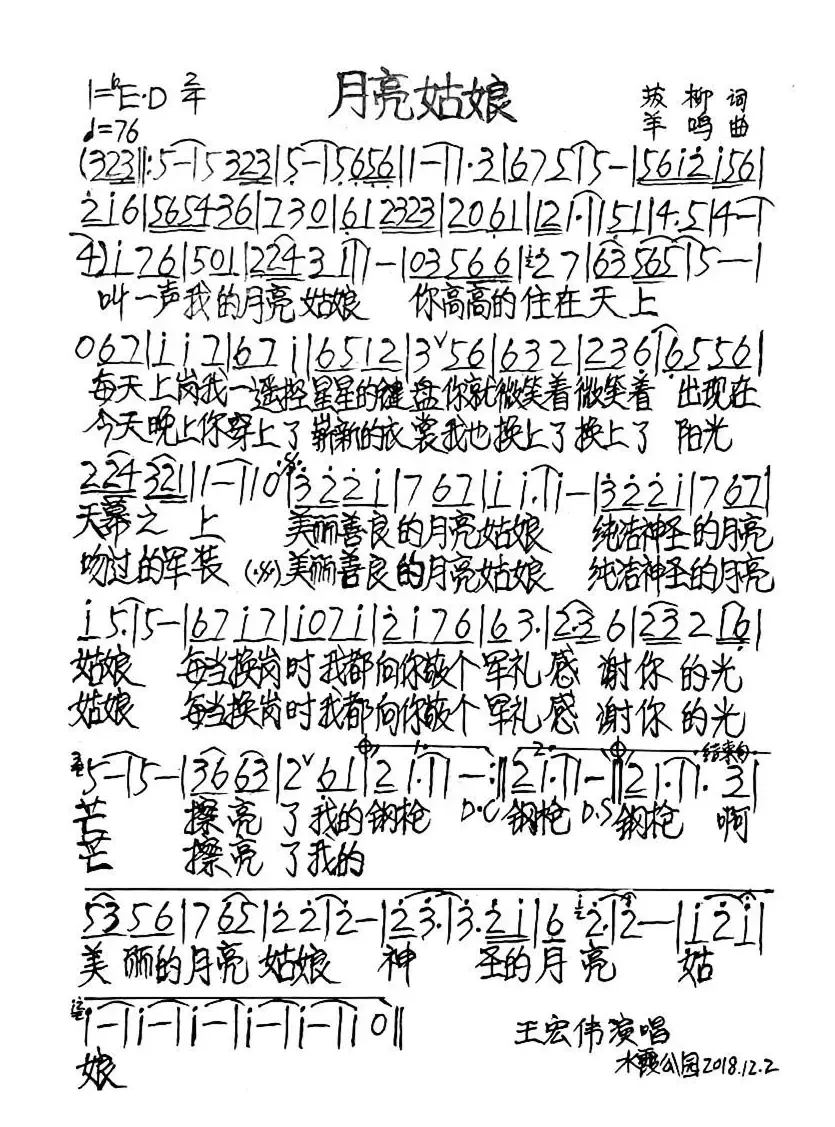 月亮姑娘
1=♭E·D 2/4
♩=76
拔柳 词
羊鸣 曲
(323‖:5-|5 323|5-|5 656|1-|1·3|675|5-|561̇2̇1̇56|
2̇1̇6|565436|730|612323|2061|121·|1|51|4·5|4-|
4)1̇76|501|22431|1-|03566|27|63565|5-|
叫一声我的月亮姑娘 你高高的住在天上
067|1̇1̇7|671̇|6512|3ˇ56|632|236|6556|
每天上岗我一遥控星星的键盘你就微笑着微笑着 出现在
今天晚上你穿上了崭新的衣裳我也换上了换上了 阳光
224321|1-|10|3̇2̇2̇1̇|767|1̇1̇·|1̇-|3̇2̇2̇1̇|767|
天幕之上 美丽善良的月亮姑娘 纯洁神圣的月亮
吻过的军装 (·𝄋·)美丽善良的月亮姑娘 纯洁神圣的月亮
1̇5·|5-|671̇7|1̇071̇|2̇1̇76|63·|2·36|23216|
姑娘 每当换岗时我都向你敬个军礼感谢你的光
姑娘 每当换岗时我都向你敬个军礼感谢你的光
5-|5-|3663|2ˇ61|21·|1-:‖21·|1-‖21·|1·3| 结束句
芒 擦亮了我的钢枪 D.C 钢枪 D.S 钢枪 啊
芒 擦亮了我的
5356|765|2̇2̇|2̇-|2̇3̇·|3̇·2̇1̇|62̇·|2̇--|1̇2̇1̇|
美丽的月亮姑娘 神圣的月亮 姑
1̇-|1̇-|1̇-|1̇-|1̇-|1̇0‖
娘
王宏伟演唱
水霞公园2018.12.2